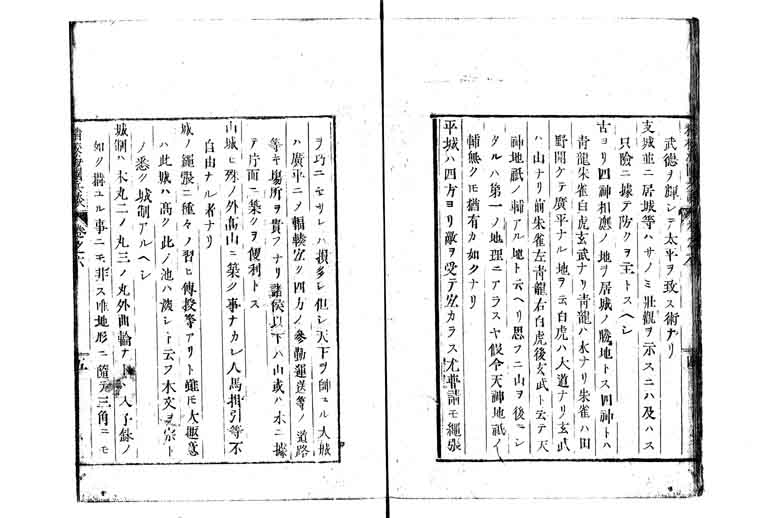 武德ヲ輝シテ太平ヲ致ス術ナリ
支城並ニ居城等ハサノミ壯觀ヲ示スニハ及ハス
只險ニ據テ防クヲ主トスヘシ
古ヨリ四神相應ノ地ヲ居城ノ勝地トス四神トハ
青龍朱雀白虎玄武ナリ青龍ハ水ナリ朱雀ハ田
野開ケテ廣平ナル地ヲ云白虎ハ大道ナリ玄武
ハ山ナリ前朱雀左青龍右白虎後玄武ト云テ天
神地祇ノ輔アル地ト云ヘリ思フニ山ヲ後ニシ
タルハ第一ノ地理ニアラスヤ假令天神地祇ノ
輔無クモ猶有カ如クナリ
平城ハ四方ヨリ敵ヲ受テ宜カラス尤普請モ繩張
ヲ巧ニセサレハ損多レ但シ天下ヲ師ユル大城
ハ廣平ニメ輻輳宜ク四方ノ參勤運送等ノ道路
等キ場所ヲ貴フナリ諸侯以下ハ山或ハ水ニ據
テ片面ニ築クヲ便利トス
山城ヒ殊ノ外高山ニ築ク事ナカレ人馬掛引等不
自由ナル者ナリ
城ノ繩張ニ種々ノ習ヒ傳授等アリト雖モ大概
ハ此城ハ高ク此ノ池ハ淡シト云フ本文ヲ宗ト
ノ悉ク城制アルヘシ
城制ハ本丸二ノ丸三ノ丸外曲輪ナト人予餘ノ
如ク搆ユル事ニモ非ス唯地形ニ隨テ三角ニモ
五